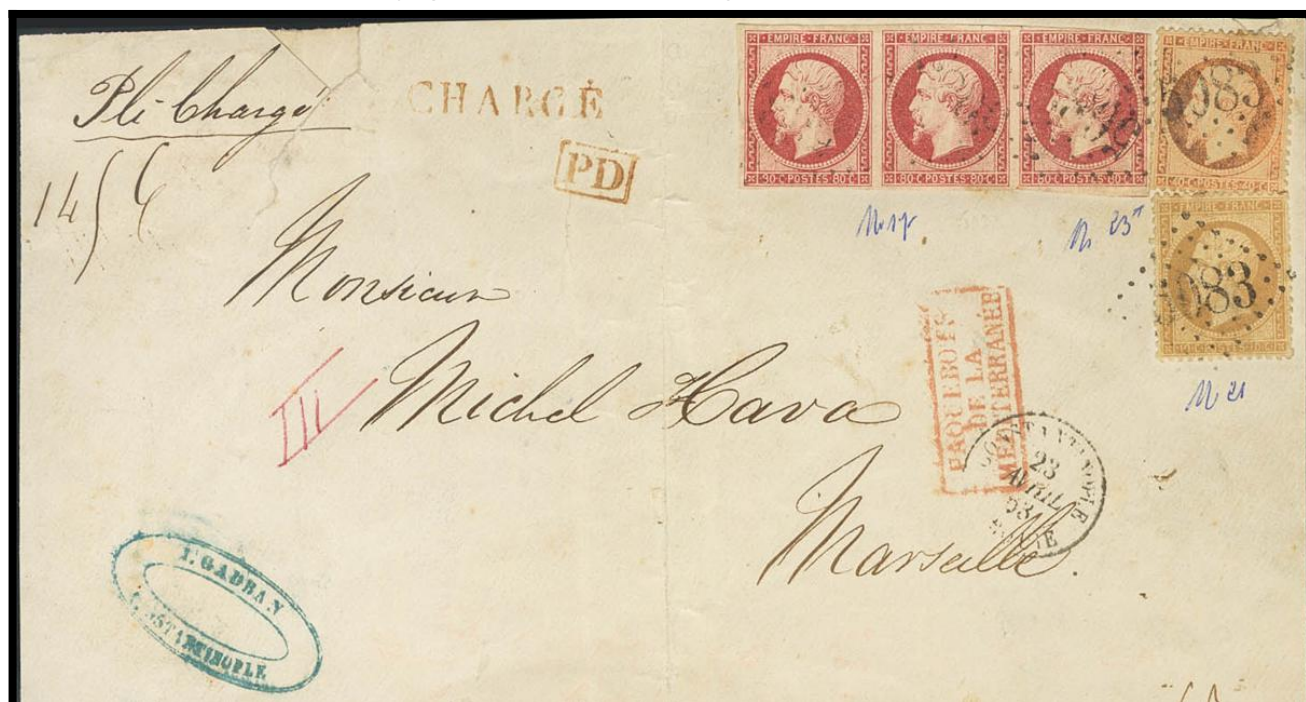 Pli Chargé
CHARGÉ
PD
EMPIRE FRANC
90 C POSTES 80 C
EMPIRE FRANC
80 C POSTES 80 C
EMPIRE FRANC
80 C POSTES 80 C
EMPIRE FRANC
40 C POSTES 40 C
EMPIRE FRANC
5083
5083
No 17
No 23
No 21
Monsieur
Michel Hava
Marseille.
III
PAQUEBOTS
DE LA
MEDITERRANÉE
CONSTANTINOPLE
23
AVRIL
63
GADBAN
CONSTANTINOPLE